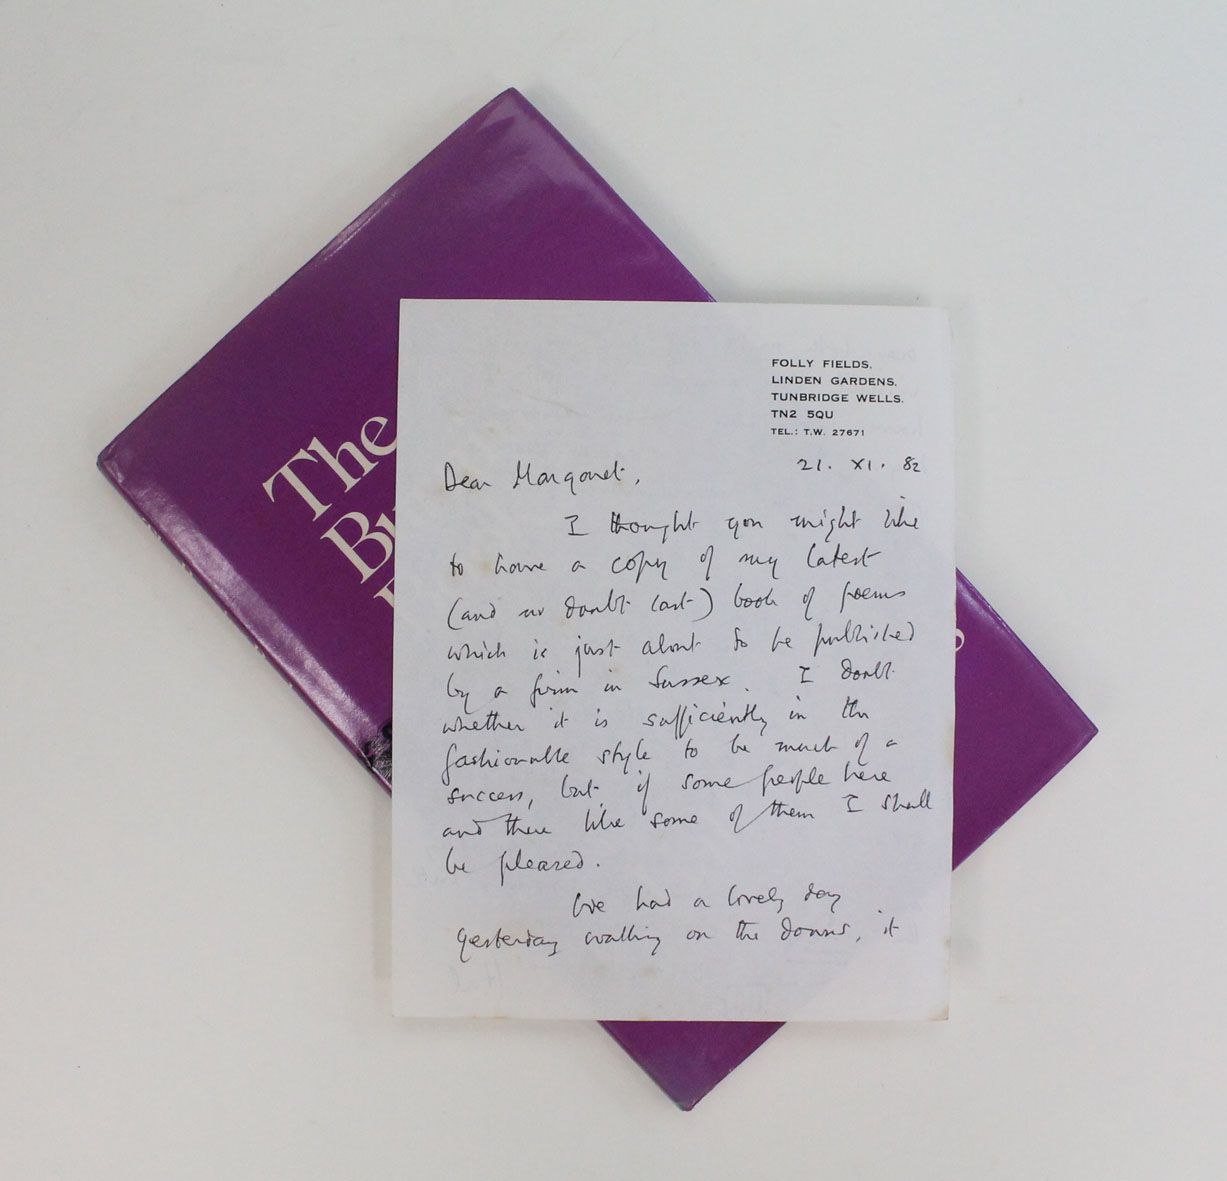 The
Bu
FOLLY FIELDS,
LINDEN GARDENS,
TUNBRIDGE WELLS.
TN2 5QU
TEL.: T.W. 27671
21. XI. 82
Dear Margaret,
I thought you might like
to have a copy of my latest
(and no doubt last) book of poems
which is just about to be published
by a firm in Sussex. I doubt
whether it is sufficiently in the
fashionable style to be much of a
success, but if some people here
and there like some of them I shall
be pleased.
We had a lovely day
yesterday walking on the downs, it